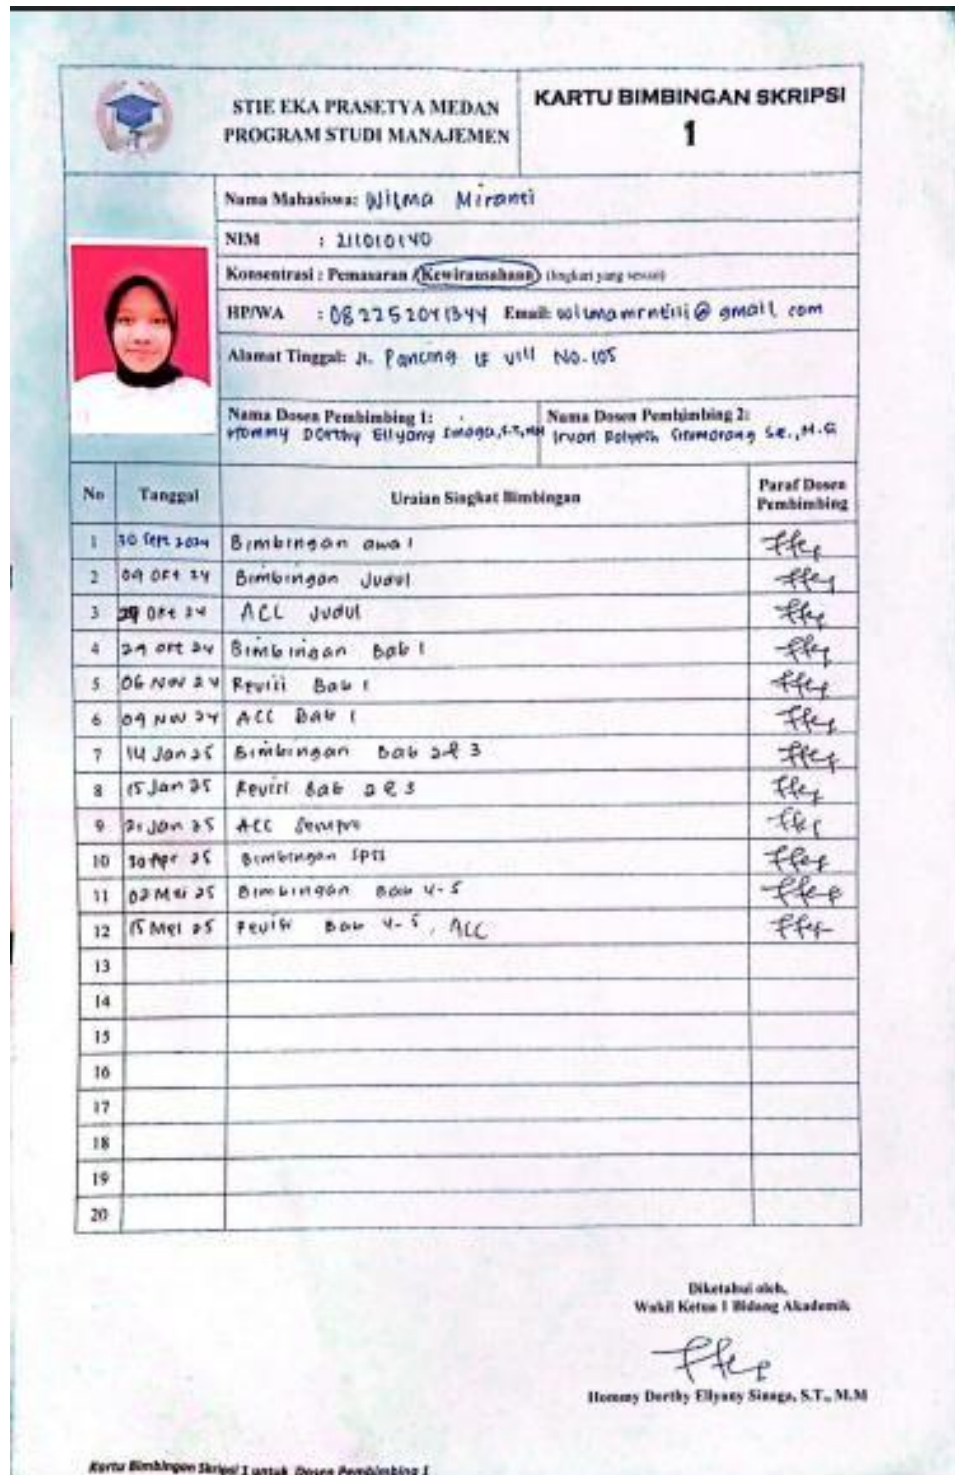 STIE EKA PRASETYA MEDAN
PROGRAM STUDI MANAJEMEN
KARTU BIMBINGAN SKRIPSI
1
Nama Mahasiswa: Wilma Miranti
NIM : 211010140
Konsentrasi : Pemasaran / Kewirausahaan (lingkari yang sesuai)
HP/WA : 082252041344 Email: @ gmail com
Alamat Tinggal: Jl. Pancing NO. 105
Nama Dosen Pembimbing 1: Nama Dosen Pembimbing 2:
Hommy Dorthy Ellyany Sinaga, S.T., MM Irvan Rolyesh Situmorang SE., M.Si
No Tanggal Uraian Singkat Bimbingan Paraf Dosen Pembimbing
1 30 Sept 2024 Bimbingan awal
2 09 Okt 24 Bimbingan Judul
3 29 Okt 24 ACC Judul
4 29 Okt 24 Bimbingan Bab 1
5 06 Nov 24 Revisi Bab 1
6 09 Nov 24 ACC Bab 1
7 14 Jan 25 Bimbingan Bab 2 & 3
8 15 Jan 25 Revisi Bab 2 & 3
9 21 Jan 25 ACC Sempro
10 30 Apr 25 Bimbingan SPSS
11 02 Mei 25 Bimbingan Bab 4-5
12 15 Mei 25 Revisi Bab 4-5, ACC
13
14
15
16
17
18
19
20
Diketahui oleh,
Wakil Ketua 1 Bidang Akademik
Hommy Dorthy Ellyany Sinaga, S.T., M.M
Kartu Bimbingan Skripsi 1 untuk Dosen Pembimbing 1